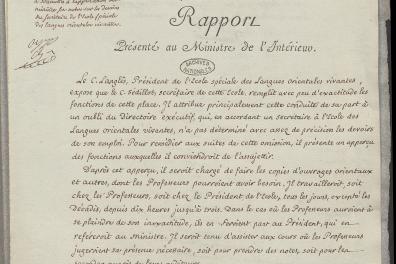 ministre sur les devoirs
du secrétaire de l'Ecole spéciale
des langues orientales vivantes.
Rapport
Présenté au Ministre de l'Intérieur.
ARCHIVES
NATIONALES
Le C. Langlès, Président de l'Ecole spéciale des Langues orientales vivantes,
expose que le C. Sédillot, secrétaire de cette Ecole, remplit avec peu d'exactitude les
fonctions de cette place. Il attribue principalement cette conduite de sa part à
un oubli du Directoire exécutif, qui, en accordant un secrétaire à l'Ecole des
Langues orientales vivantes, n'a pas déterminé avec assez de précision les devoirs
de son emploi. Pour remédier aux suites de cette omission, il présente un apperçu
des fonctions auxquelles il conviendroit de l'assujettir.
D'après cet apperçu, il seroit chargé de faire les copies d'ouvrages orientaux
et autres, dont les Professeurs pourroient avoir besoin. Il travailleroit, soit
chez les Professeurs, soit chez le Président de l'Ecole, tous les jours, excepté les
Décadis, depuis dix heures jusqu'à trois. Dans le cas où les Professeurs auroient à
se plaindre de son inexactitude, ils en feroient part au Président, qui en
référeroit au Ministre. Il seroit tenu d'assister aux cours où les Professeurs
jugeroient sa présence nécessaire, soit pour prendre des notes, soit pour les